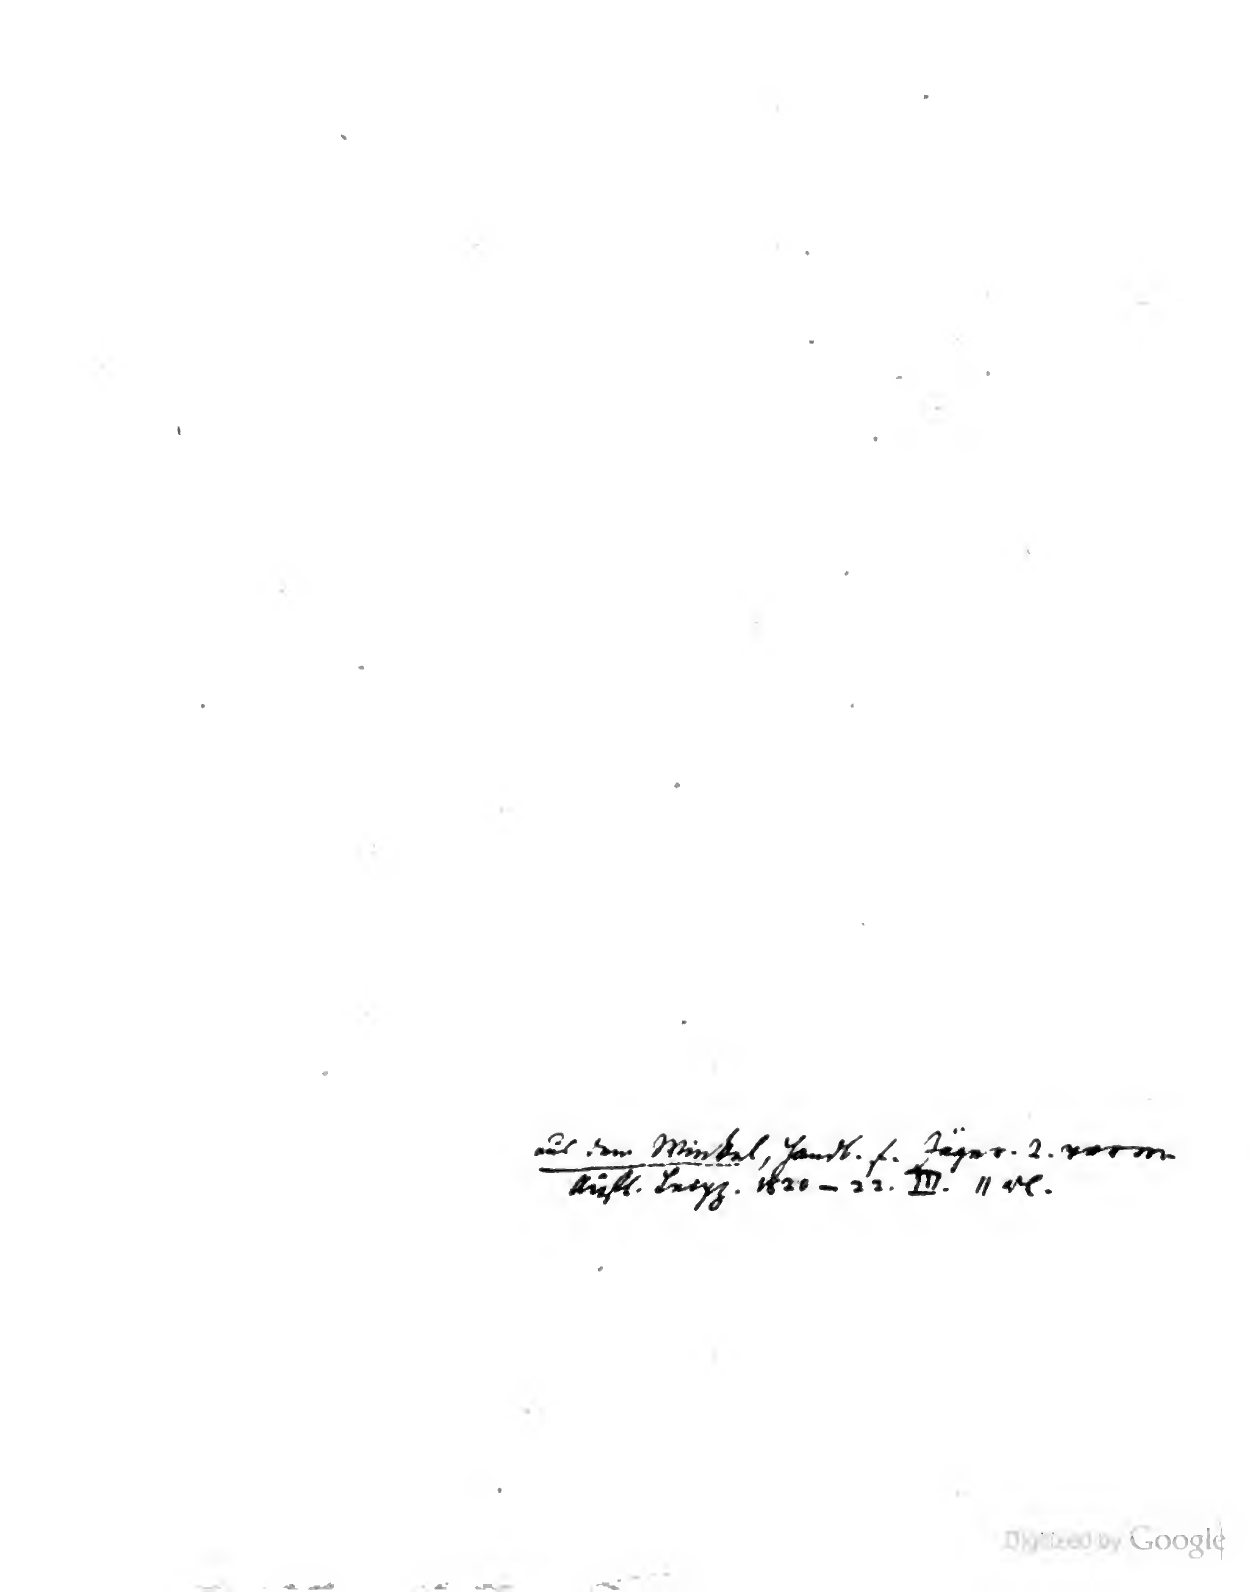 aus dem Winkel, Handb. f. Jäger. 2. verm
Aufl. Leipz. 1820 – 22. III. 11
Digitized by Google